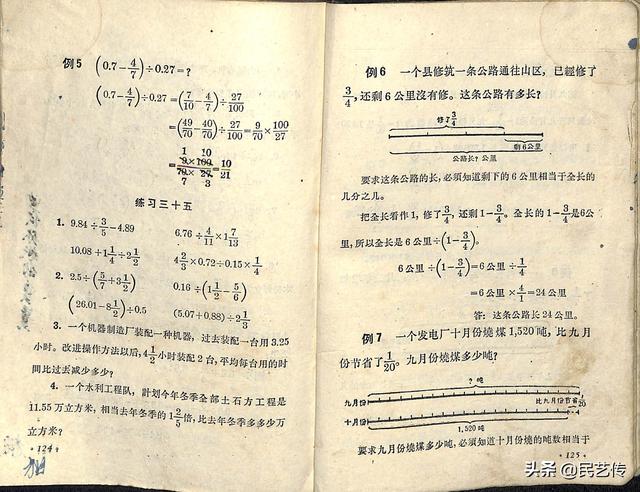 例5 (0.7-4/7)÷0.27=?
(0.7-4/7)÷0.27=(7/10-4/7)÷27/100
=(49/70-40/70)÷27/100=9/70×100/27
1 10
=9×100/70×27=10/21
7 3
练习三十五
1. 9.84÷3/5-4.89 6.76÷4/11×1 7/13
10.08+1 1/4÷2 1/2 4 2/3×0.72÷0.15×1/4
2. 2.5÷(5/7+3 1/2) 0.16÷(1 1/2-5/6)
(26.01-8 1/2)÷0.5 (5.07+0.88)÷2 1/3
3. 一个机器制造厂装配一种机器，过去装配一台用3.25
小时。改进操作方法以后，4 1/2小时装配2台，平均每台用的时
间比过去减少多少?
4. 一个水利工程队，計划今年冬季全部土石方工程是
11.55万立方米，相当去年冬季的1 2/5倍，比去年冬季多多少万
立方米?
·124·
例6 一个县修筑一条公路通往山区，已經修了
3/4，还剩6公里沒有修。这条公路有多长?
修了3/4
剩6公里
公路长?公里
要求这条公路的长，必须知道剩下的6公里相当于全长的
几分之几。
把全长看作1，修了3/4，还剩1-3/4。全长的1-3/4是6公
里，所以全长是6公里÷(1-3/4)。
6公里÷(1-3/4)=6公里÷1/4
=6公里×4/1=24公里
答：这条公路长24公里。
例7 一个发电厂十月份燒煤1,520吨，比九月
份节省了1/20。九月份燒煤多少吨?
?吨
九月份
比九月份节省1/20
十月份
1,520吨
要求九月份燒煤多少吨，必须知道十月份燒的吨数相当于
·125·
头条 @民艺传